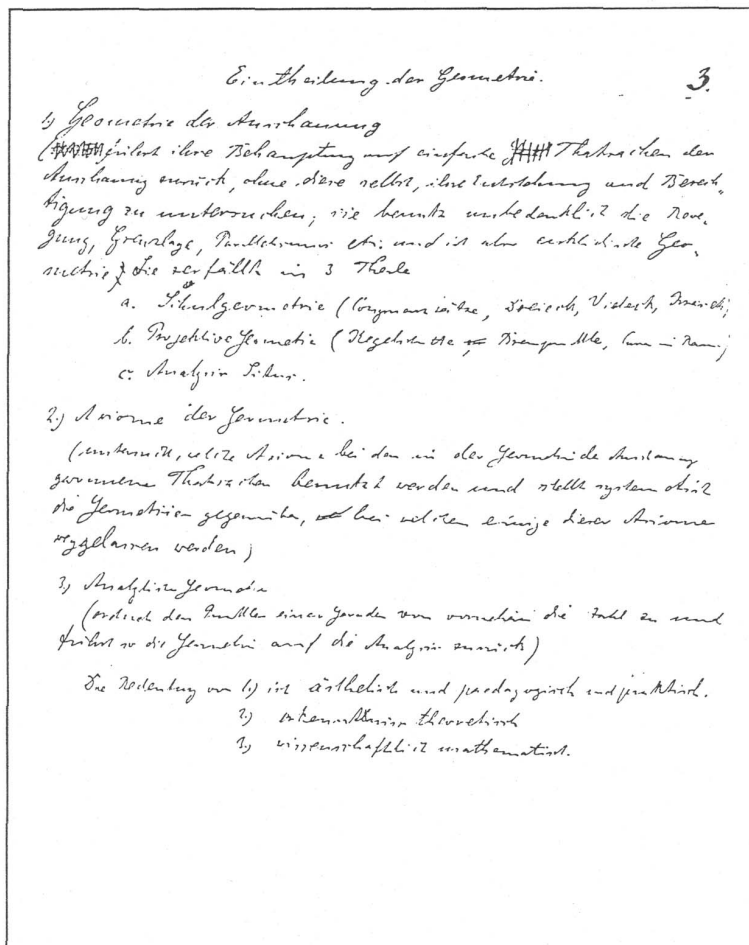 Eintheilung der Geometrie. 3.
1.) Geometrie der Anschauung
(führt ihre Behauptung auf einfache Thatsachen der
Anschauung zurück, ohne diese selbst, ihre Entstehung und Berech-
tigung zu untersuchen; sie benutzt unbedenklich die Bewe-
gung, Grenzlage, Parallelismus etc. und ist also euklidische Geo-
metrie) Sie zerfällt in 3 Theile
a. Schulgeometrie (Congruenzsätze, Dreieck, Vieleck, Kreis)
b. Projektive Geometrie (Kegelschnitte Brennpunkte, Curven im Raum)
c. Analysis Situs.
2.) Axiome der Geometrie.
(untersucht, welche Axiome bei den in der Geometrie der Anschauung
gewonnenen Thatsachen benutzt werden und stellt systematisch
die Geometrien gegenüber, bei welchen einige dieser Axiome
weggelassen werden)
3.) Analytische Geometrie
(ordnet den Punkten einer Geraden von vornherein die Zahl zu und
führt so die Geometrie auf die Analysis zurück)
Die Bedeutung von 1.) ist ästhetisch und paedagogisch und praktisch.
2.) erkenntnisstheoretisch
3.) wissenschaftlich mathematisch.